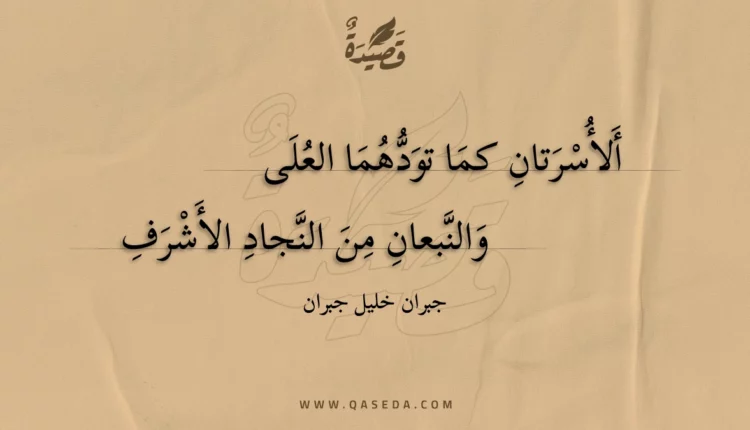 قَصِيْدَةٌ
أَلأُسْرَتانِ كمَا توَدُّهُمَا العُلَى
وَالنَّبعانِ مِنَ النَّجادِ الأَشْرَفِ
جبران خليل جبران
WWW.QASEDA.COM